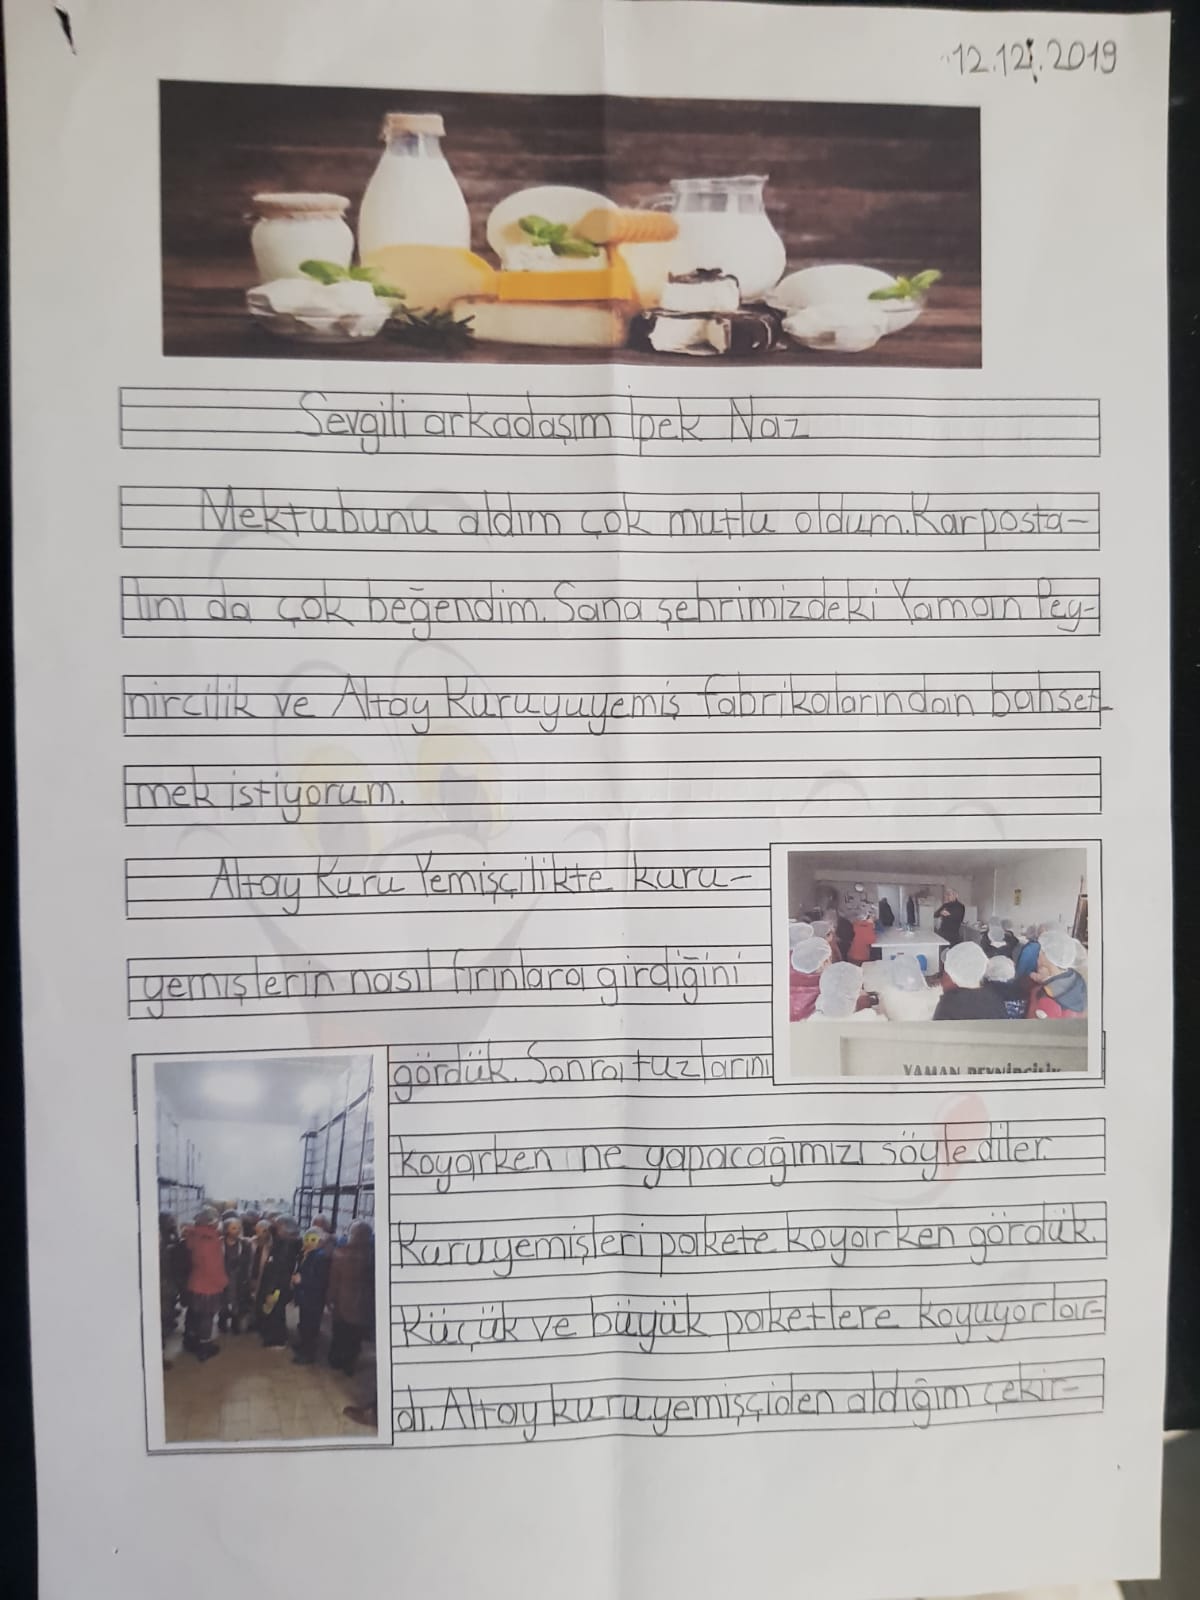 12.12.2019
Sevgili arkadaşım İpek Naz
Mektubunu aldım çok mutlu oldum. Karposta-
lını da çok beğendim. Sana şehrimizdeki Yaman Pey-
nircilik ve Altay Kuruyuyemiş fabrikalarından bahset-
mek istiyorum.
Altay Kuru Yemişçilikte kuru-
yemişlerin nasıl fırınlara girdiğini
gördük. Sonra tuzlarını
YAMAN PEYNİRCİLİK
koyarken ne yapacağımızı söylediler.
Kuruyemişleri pakete koyarken gördük.
Küçük ve büyük paketlere koyuyorlar-
dı. Altay kuruyemişçiden aldığım çekir-